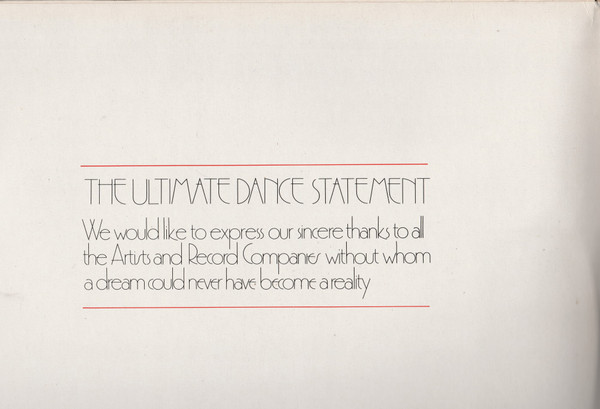 THE ULTIMATE DANCE STATEMENT
We would like to express our sincere thanks to all
the Artists and Record Companies without whom
a dream could never have become a reality